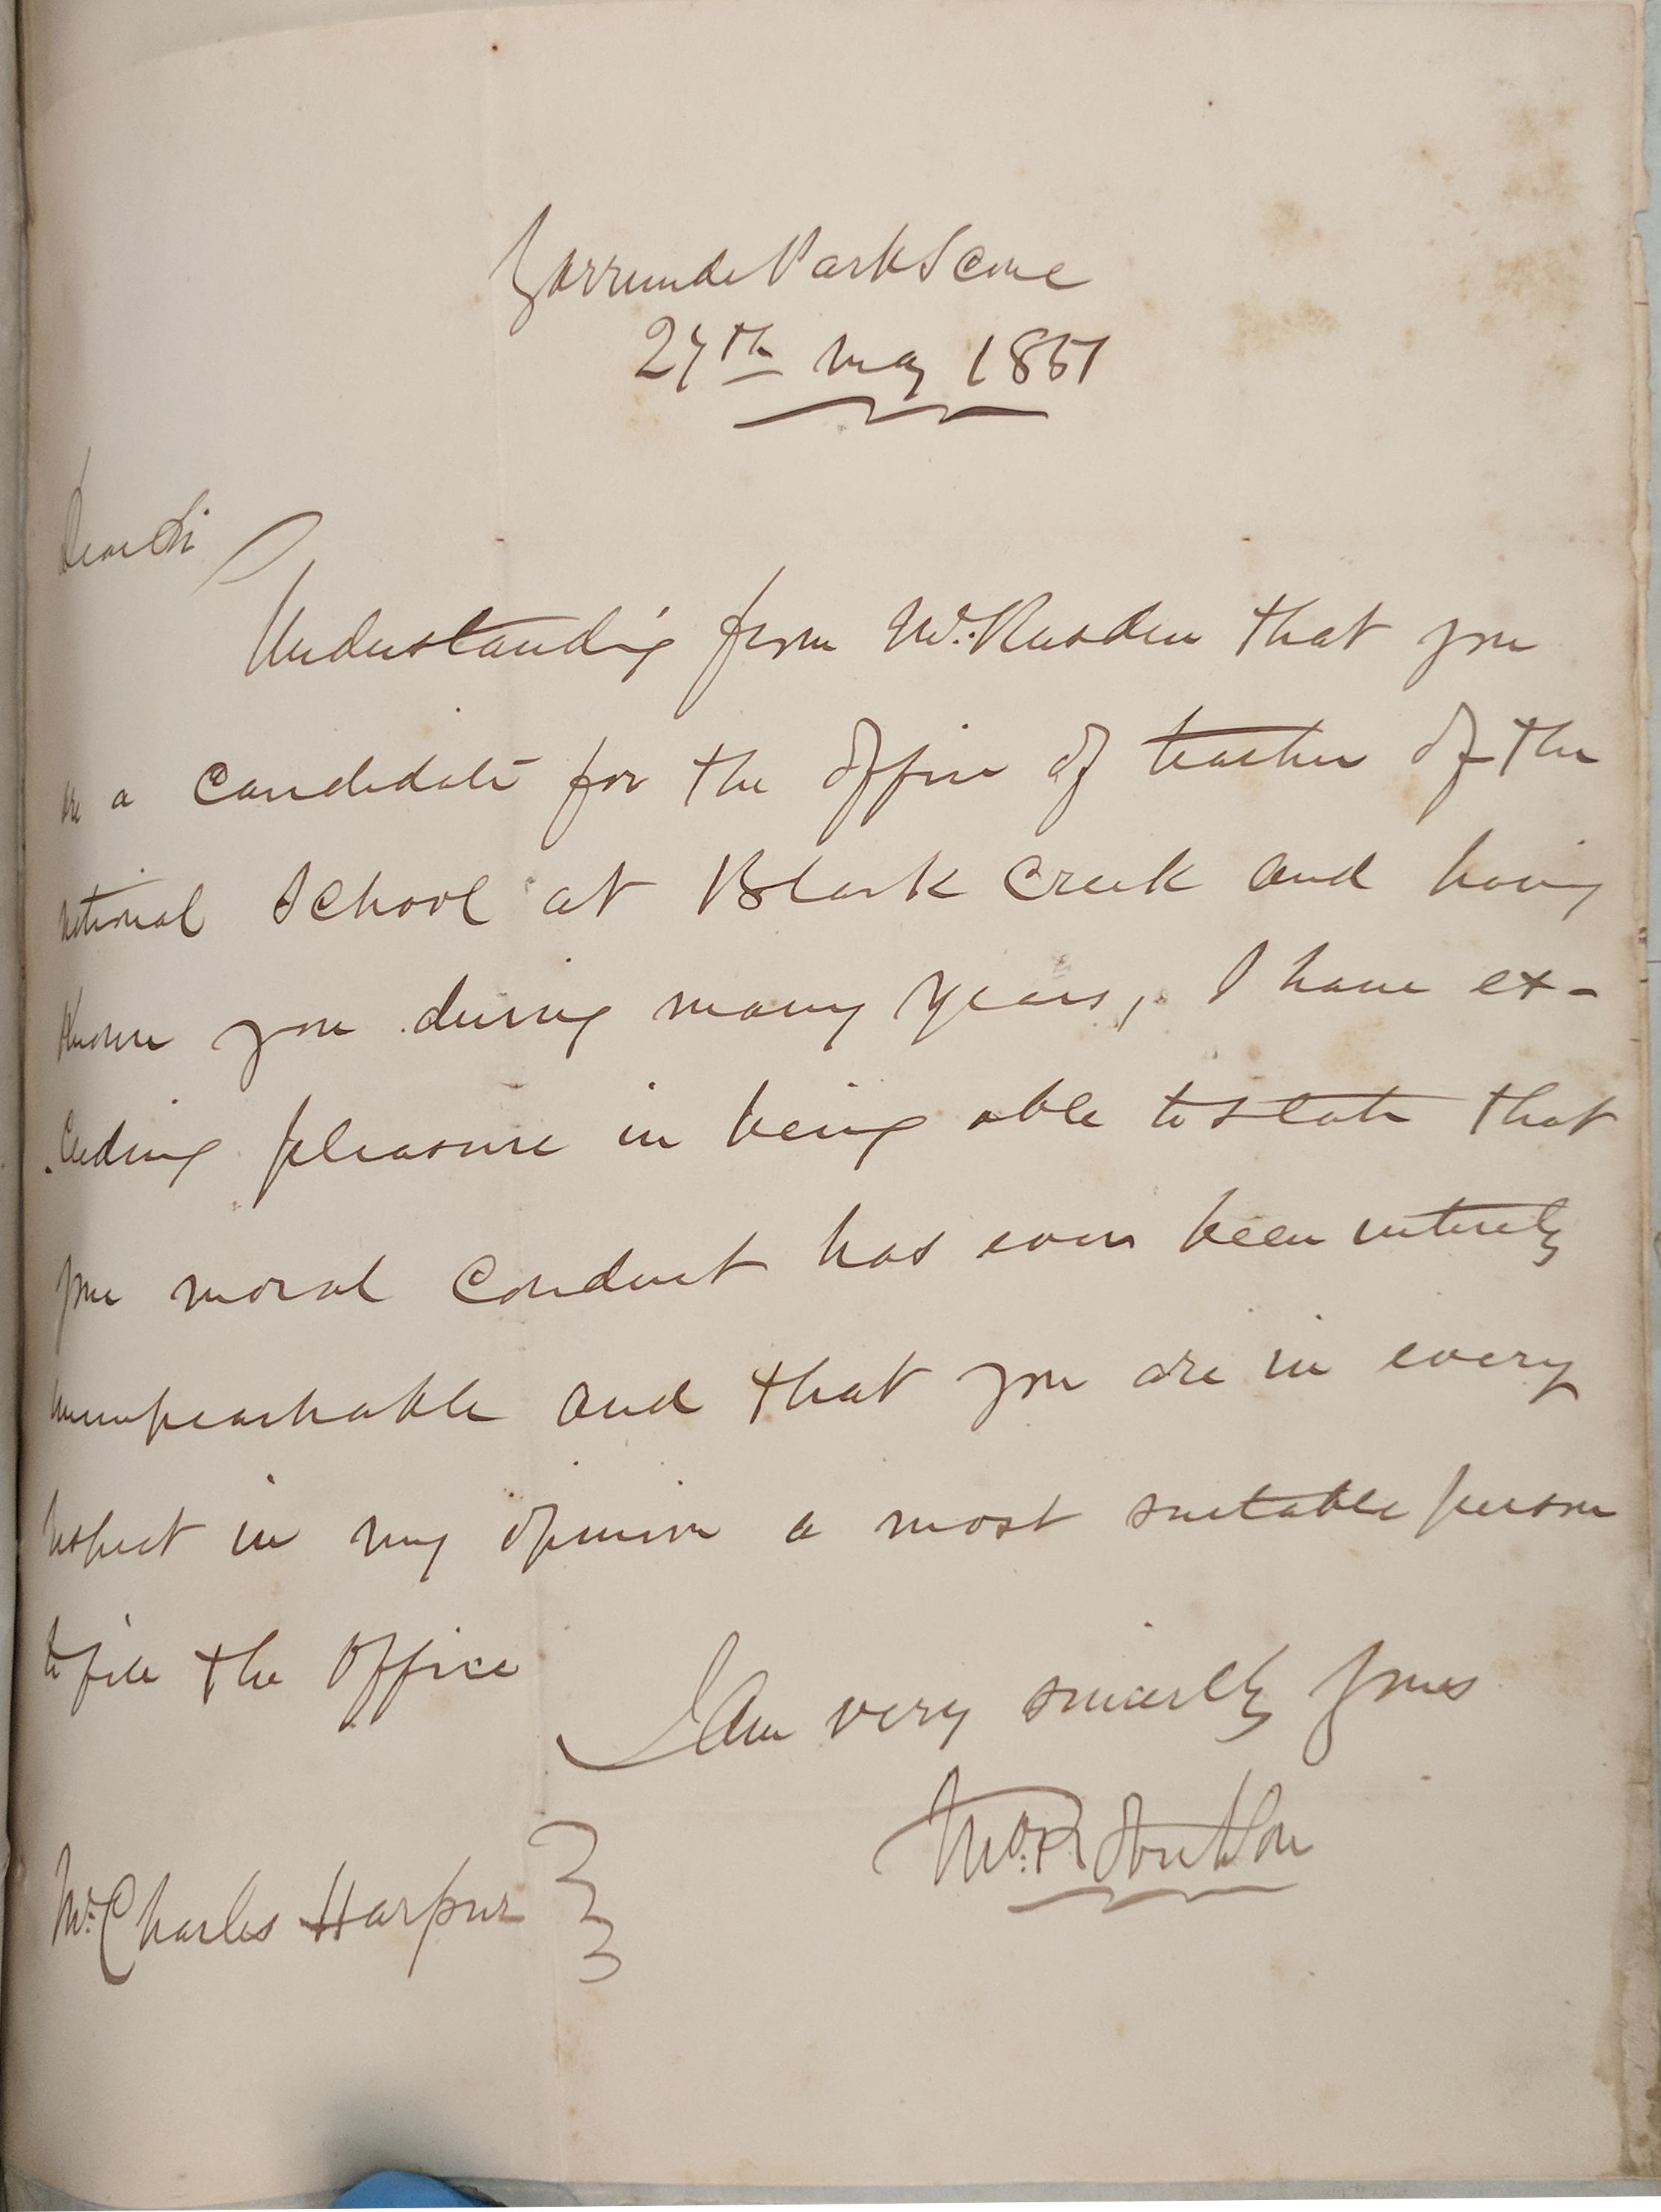 Park Scone
27th May 1851
Dear Sir
Understanding from Mr. Rusden that you
are a Candidate for the Office of teacher of the
National School at Black Creek and having
known you during many years, I have ex-
ceeding pleasure in being able to state that
your moral Conduct has ever been entirely
unimpeachable and that you are in every
respect in my opinion a most suitable person
to fill the Office
I Am very sincerely yours
Mr Charles Harpur